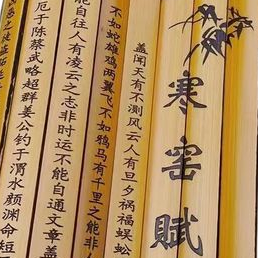 寒窑赋
盖闻天有不测风云人有旦夕祸福蜈蚣
不如蛇雄鸡两翼飞不如鸦马有千里之能非
能自往人有凌云之志非时运不能自通文章盖
厄于陈蔡武略超群姜公钓于渭水颜渊命短